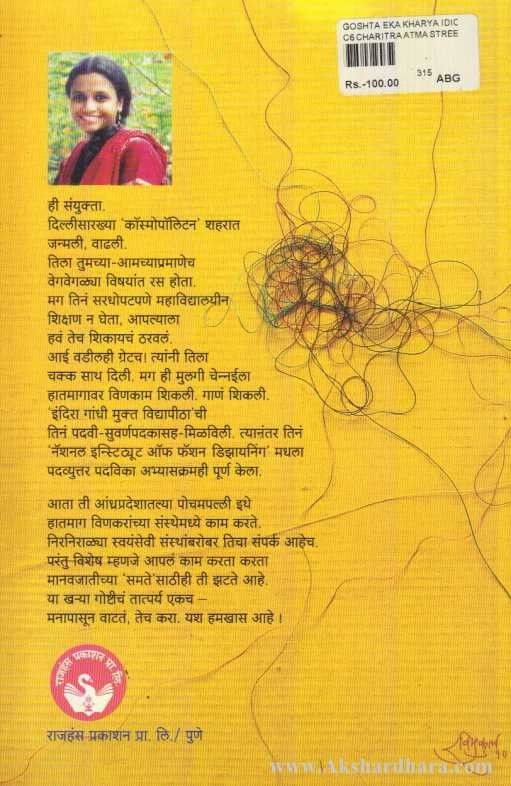 GOSHTA EKA KHARYA IDIC
C6 CHARITRA ATMA STREE
315
Rs.-100.00 ABG
ही संयुक्ता.
दिल्लीसारख्या 'कॉस्मोपॉलिटन' शहरात
जन्मली, वाढली.
तिला तुमच्या-आमच्याप्रमाणेच
वेगवेगळ्या विषयांत रस होता.
मग तिनं सरधोपटपणे महाविद्यालयीन
शिक्षण न घेता, आपल्याला
हवं तेच शिकायचं ठरवलं.
आई वडीलही ग्रेटच! त्यांनी तिला
चक्क साथ दिली. मग ही मुलगी चेन्नईला
हातमागावर विणकाम शिकली. गाणं शिकली.
'इंदिरा गांधी मुक्त विद्यापीठा'ची
तिनं पदवी-सुवर्णपदकासह-मिळविली. त्यानंतर तिनं
'नॅशनल इन्स्टिट्यूट ऑफ फॅशन डिझायनिंग' मधला
पदव्युत्तर पदविका अभ्यासक्रमही पूर्ण केला.
आता ती आंध्रप्रदेशातल्या पोचमपल्ली इथे
हातमाग विणकरांच्या संस्थेमध्ये काम करते.
निरनिराळ्या स्वयंसेवी संस्थांबरोबर तिचा संपर्क आहेच.
परंतु विशेष म्हणजे आपलं काम करता करता
मानवजातीच्या 'समते'साठीही ती झटते आहे.
या खऱ्या गोष्टीचं तात्पर्य एकच –
मनापासून वाटतं, तेच करा. यश हमखास आहे !
राजहंस प्रकाशन प्रा. लि.
राजहंस प्रकाशन प्रा. लि./ पुणे
www.Akshardhara.com